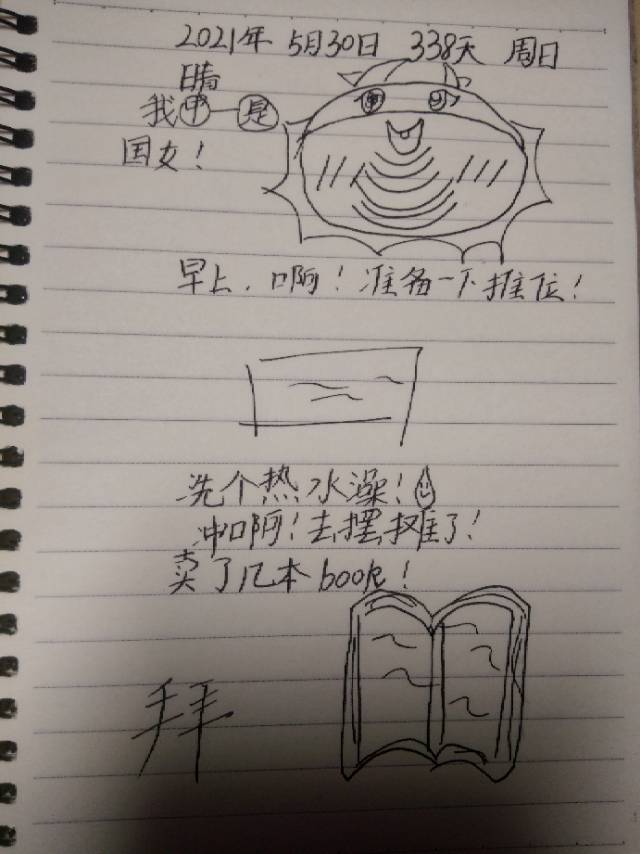 2021年 5月30日 338天 周日
晴
我中一是
国女！
早上.啊！准备一下摊位！
洗个热水澡！
冲啊！去摆摊了！
卖了几本book！
拜